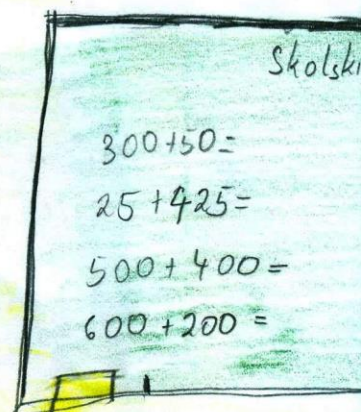 Skolski
300+50=
25+425=
500+400=
600+200=